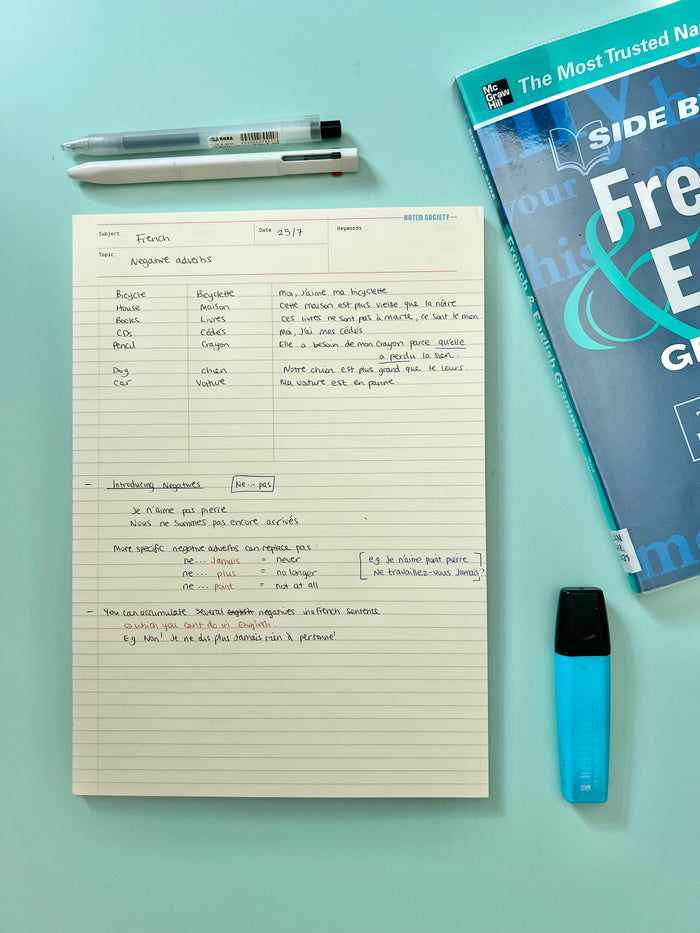 Mc
Graw
Hill
The Most Trusted Na
SIDE B
Fre
&
E
G
French & English Grammar
NOTED SOCIETY
Subject French Date 25/7 Keywords
Topic Negative adverbs
Bicycle Bicyclette Moi, J'aime ma bicyclette
House Maison Cette maison est plus vieille que la nôtre
Books Livres Ces livres ne sont pas à marie, ce sont le mien
CDs Cédés Moi, J'ai mes cédés
Pencil Crayon Elle a besoin de mon crayon parce qu'elle
a perdu la sien.
Dog chien Notre chien est plus grand que le leurs.
Car Voiture Ma voiture est en panne.
- Introducing Negatives Ne... pas
Je n'aime pas pierre
Nous ne sommes pas encore arrivés
More specific negative adverbs can replace pas
ne... Jamais = never
ne... plus = no longer
ne... point = not at all
e.g Je n'aime point pierre
Ne travaillez-vous Jamais?
- You can accumulate several english negatives in a French sentence
↳ which you can't do in English.
E.g. Non! Je ne dis plus Jamais rien à personne!